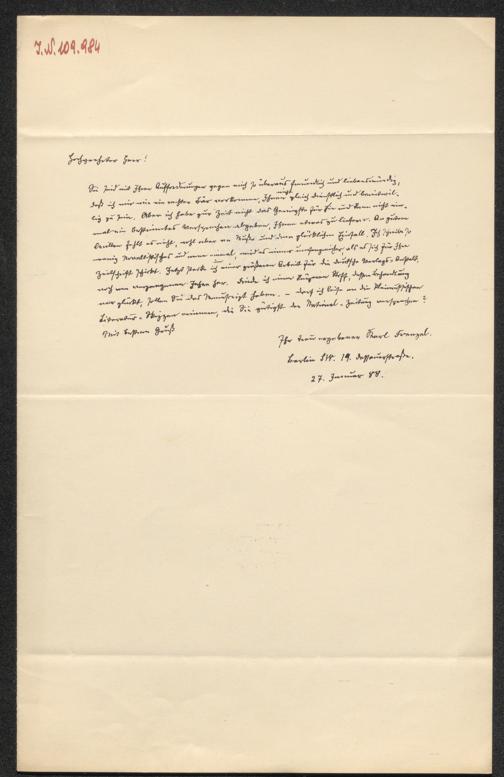 J.N. 109.984
Hochgeehrter Herr!
Sie sind mit Ihren Aufforderungen gegen mich so überaus freundlich und liebenswürdig,
daß ich mir wie ein rechter Bär vorkomme, Ihnen nicht gleich dienstlich und bereitwil-
lig zu sein. Aber ich habe zur Zeit nicht das Geringste für Sie und kann nicht ein-
mal ein bestimmtes Versprechen abgeben, Ihnen etwas zu liefern. An gutem
Willen fehlt es nicht, wohl aber an Muße und dem glücklichen Einfall. Ich schreibe so
wenig Novellistisches und wenn einmal, wird es immer umfangreicher, als es sich für Ihre
Zeitschrift schickt. Jetzt stecke ich in einer größeren Arbeit für die deutsche Verlags-Anstalt,
noch vom vergangenen Jahre her. Finde ich einen kürzeren Stoff, dessen Behandlung
mir glückt, sollen Sie das Manuskript haben. – Darf ich Sie an die
Literatur-Skizzen erinnern, die Sie gütigst der National-Zeitung versprachen?
Mit bestem Gruß
Ihr treu ergebener Karl Frenzel.
Berlin SW. 19. Dessauerstraße.
27. Januar 88.